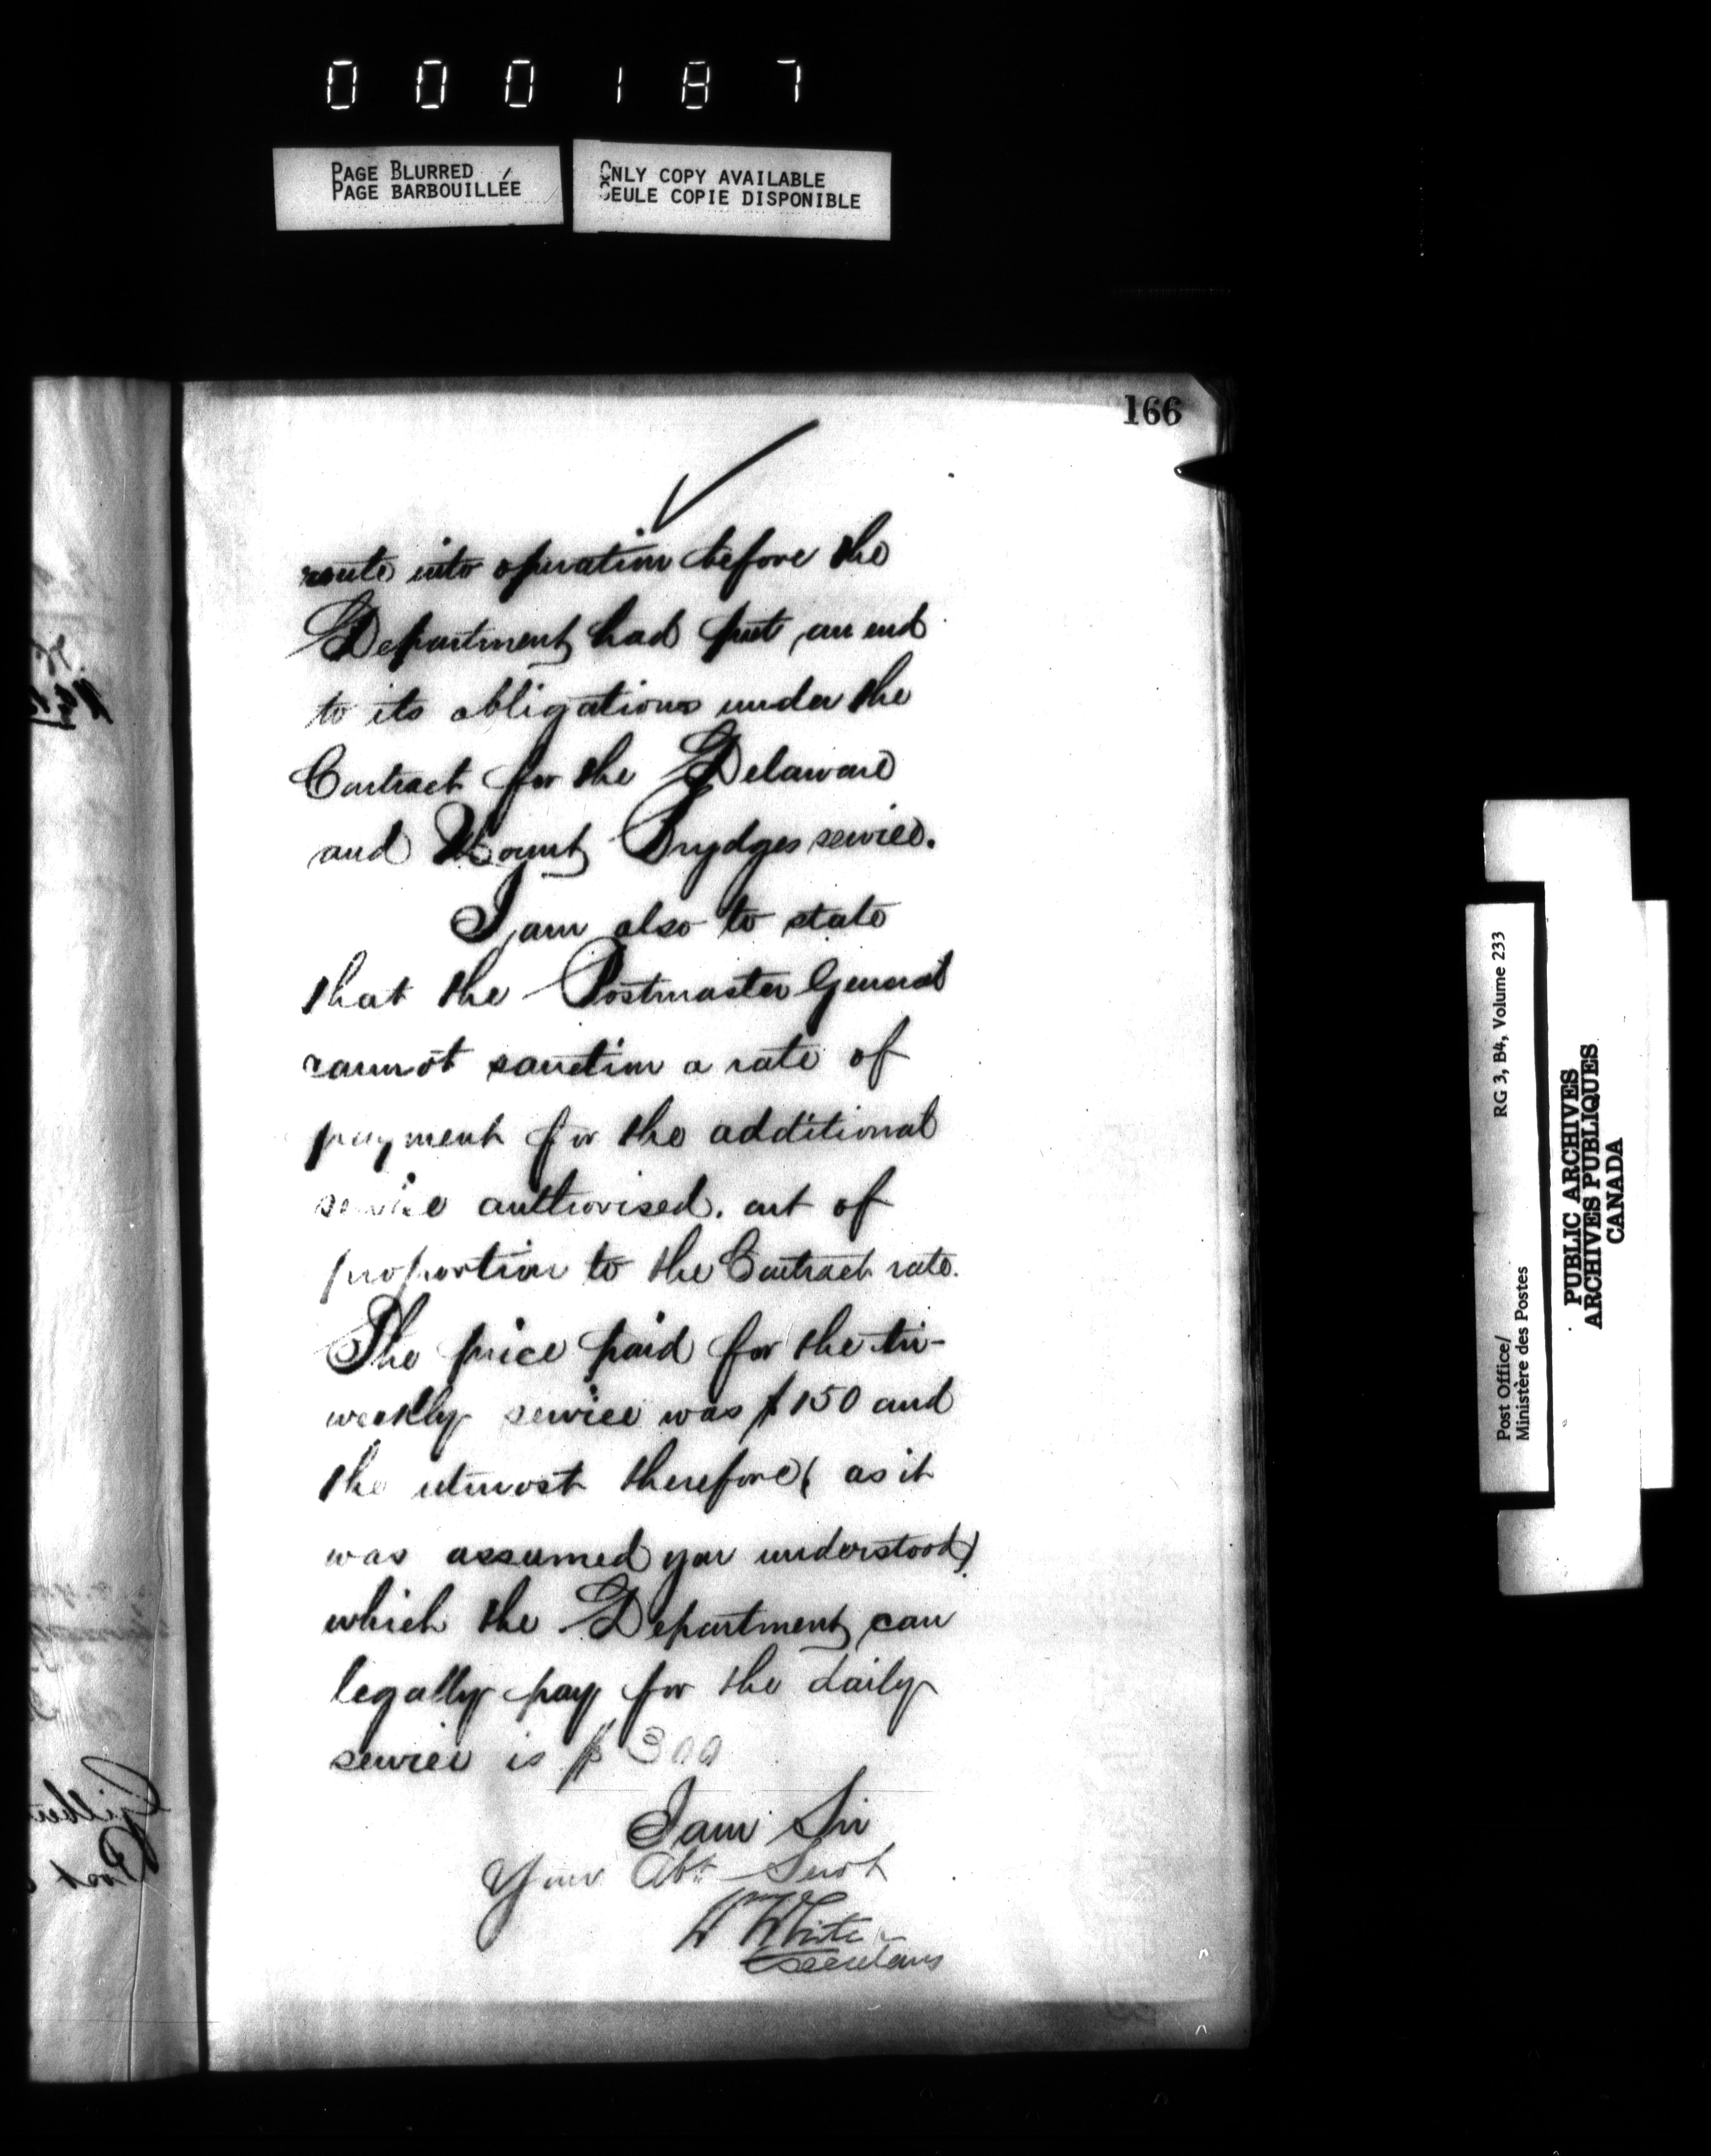 000187
PAGE BLURRED
PAGE BARBOUILLÉE
ONLY COPY AVAILABLE
SEULE COPIE DISPONIBLE
166
route into operation before the
Department had put an end
to its obligations under the
Contract for the Delaware
and Mount Brydges service.
I am also to state
that the Postmaster General
cannot sanction a rate of
payment for the additional
service authorised. out of
proportion to the Contract rate.
The price paid for the tri-
weekly service was $150 and
the utmost therefore (as it
was assumed you understood)
which the Department can
legally pay for the daily
service is $300
I am Sir
Your Obt Servt
Wm White
Secretary
Post Office/
Ministère des Postes
RG 3, B4, Volume 233
PUBLIC ARCHIVES
ARCHIVES PUBLIQUES
CANADA